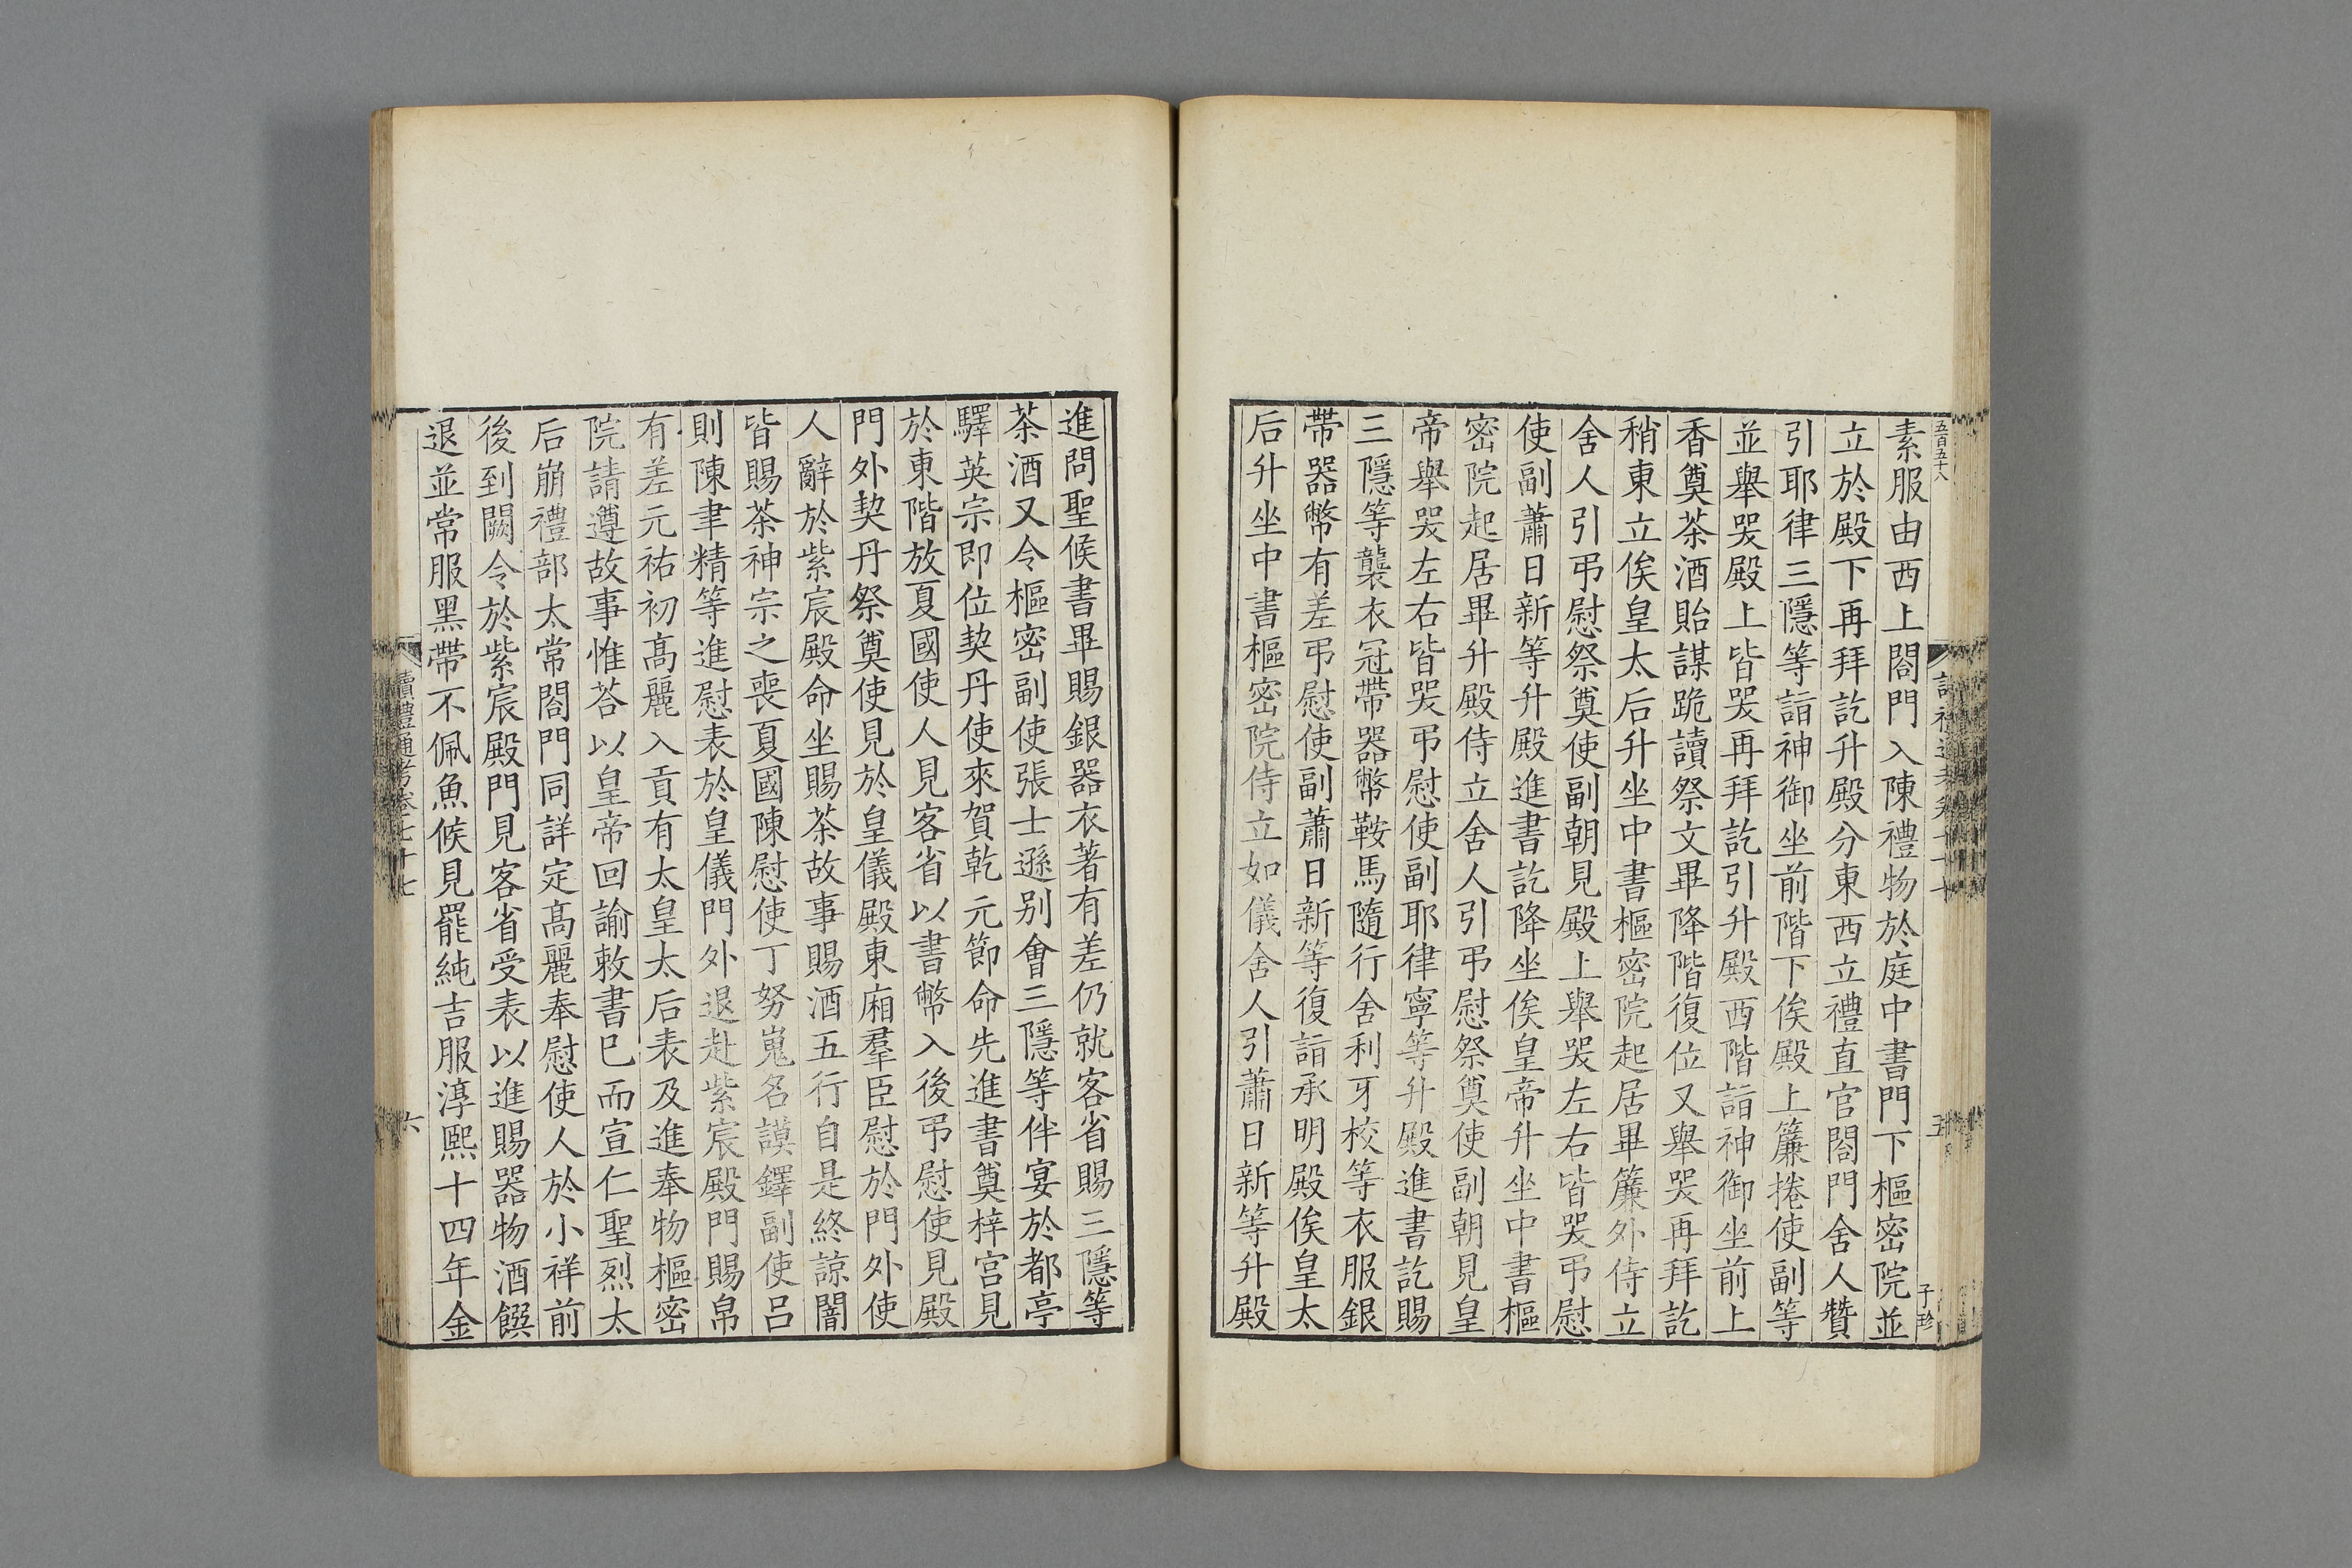 五百五十八
素服由西上閤門入陳禮物於庭中書門下樞密院並
立於殿下再拜訖升殿分東西立禮直官閤門舍人贊
引耶律三隱等詣神御坐前階下俟殿上簾捲使副等
並舉哭殿上皆哭再拜訖引升殿西階詣神御坐前上
香奠茶酒貽謀跪讀祭文畢降階復位又舉哭再拜訖
稍東立俟皇太后升坐中書樞密院起居畢簾外侍立
舍人引弔慰祭奠使副朝見殿上舉哭左右皆哭弔慰
使副蕭日新等升殿進書訖降坐俟皇帝升坐中書樞
密院起居畢升殿侍立舍人引弔慰祭奠使副朝見皇
帝舉哭左右皆哭弔慰使副耶律寧等升殿進書訖賜
三隱等襲衣冠帶器幣鞍馬隨行舍利牙校等衣服銀
帶器幣有差弔慰使副蕭日新等復詣承明殿俟皇太
后升坐中書樞密院侍立如儀舍人引蕭日新等升殿
子珍
進問聖候書畢賜銀器衣著有差仍就客省賜三隱等
茶酒又令樞密副使張士遜别會三隱等伴宴於都亭
驛英宗即位契丹使來賀乾元節命先進書奠梓宮見
於東階放夏國使人見客省以書幣入後弔慰使見殿
門外契丹祭奠使見於皇儀殿東廂羣臣慰於門外使
人辭於紫宸殿命坐賜茶故事賜酒五行自是終諒闇
皆賜茶神宗之喪夏國陳慰使丁努嵬名謨鐸副使呂
則陳聿精等進慰表於皇儀門外退赴紫宸殿門賜帛
有差元祐初高麗入貢有太皇太后表及進奉物樞密
院請遵故事惟荅以皇帝回諭敕書巳而宣仁聖烈太
后崩禮部太常閤門同詳定高麗奉慰使人於小祥前
後到闕令於紫宸殿門見客省受表以進賜器物酒饌
退並常服黑帶不佩魚候見罷純吉服淳熙十四年金
讀禮通考卷七十七
六